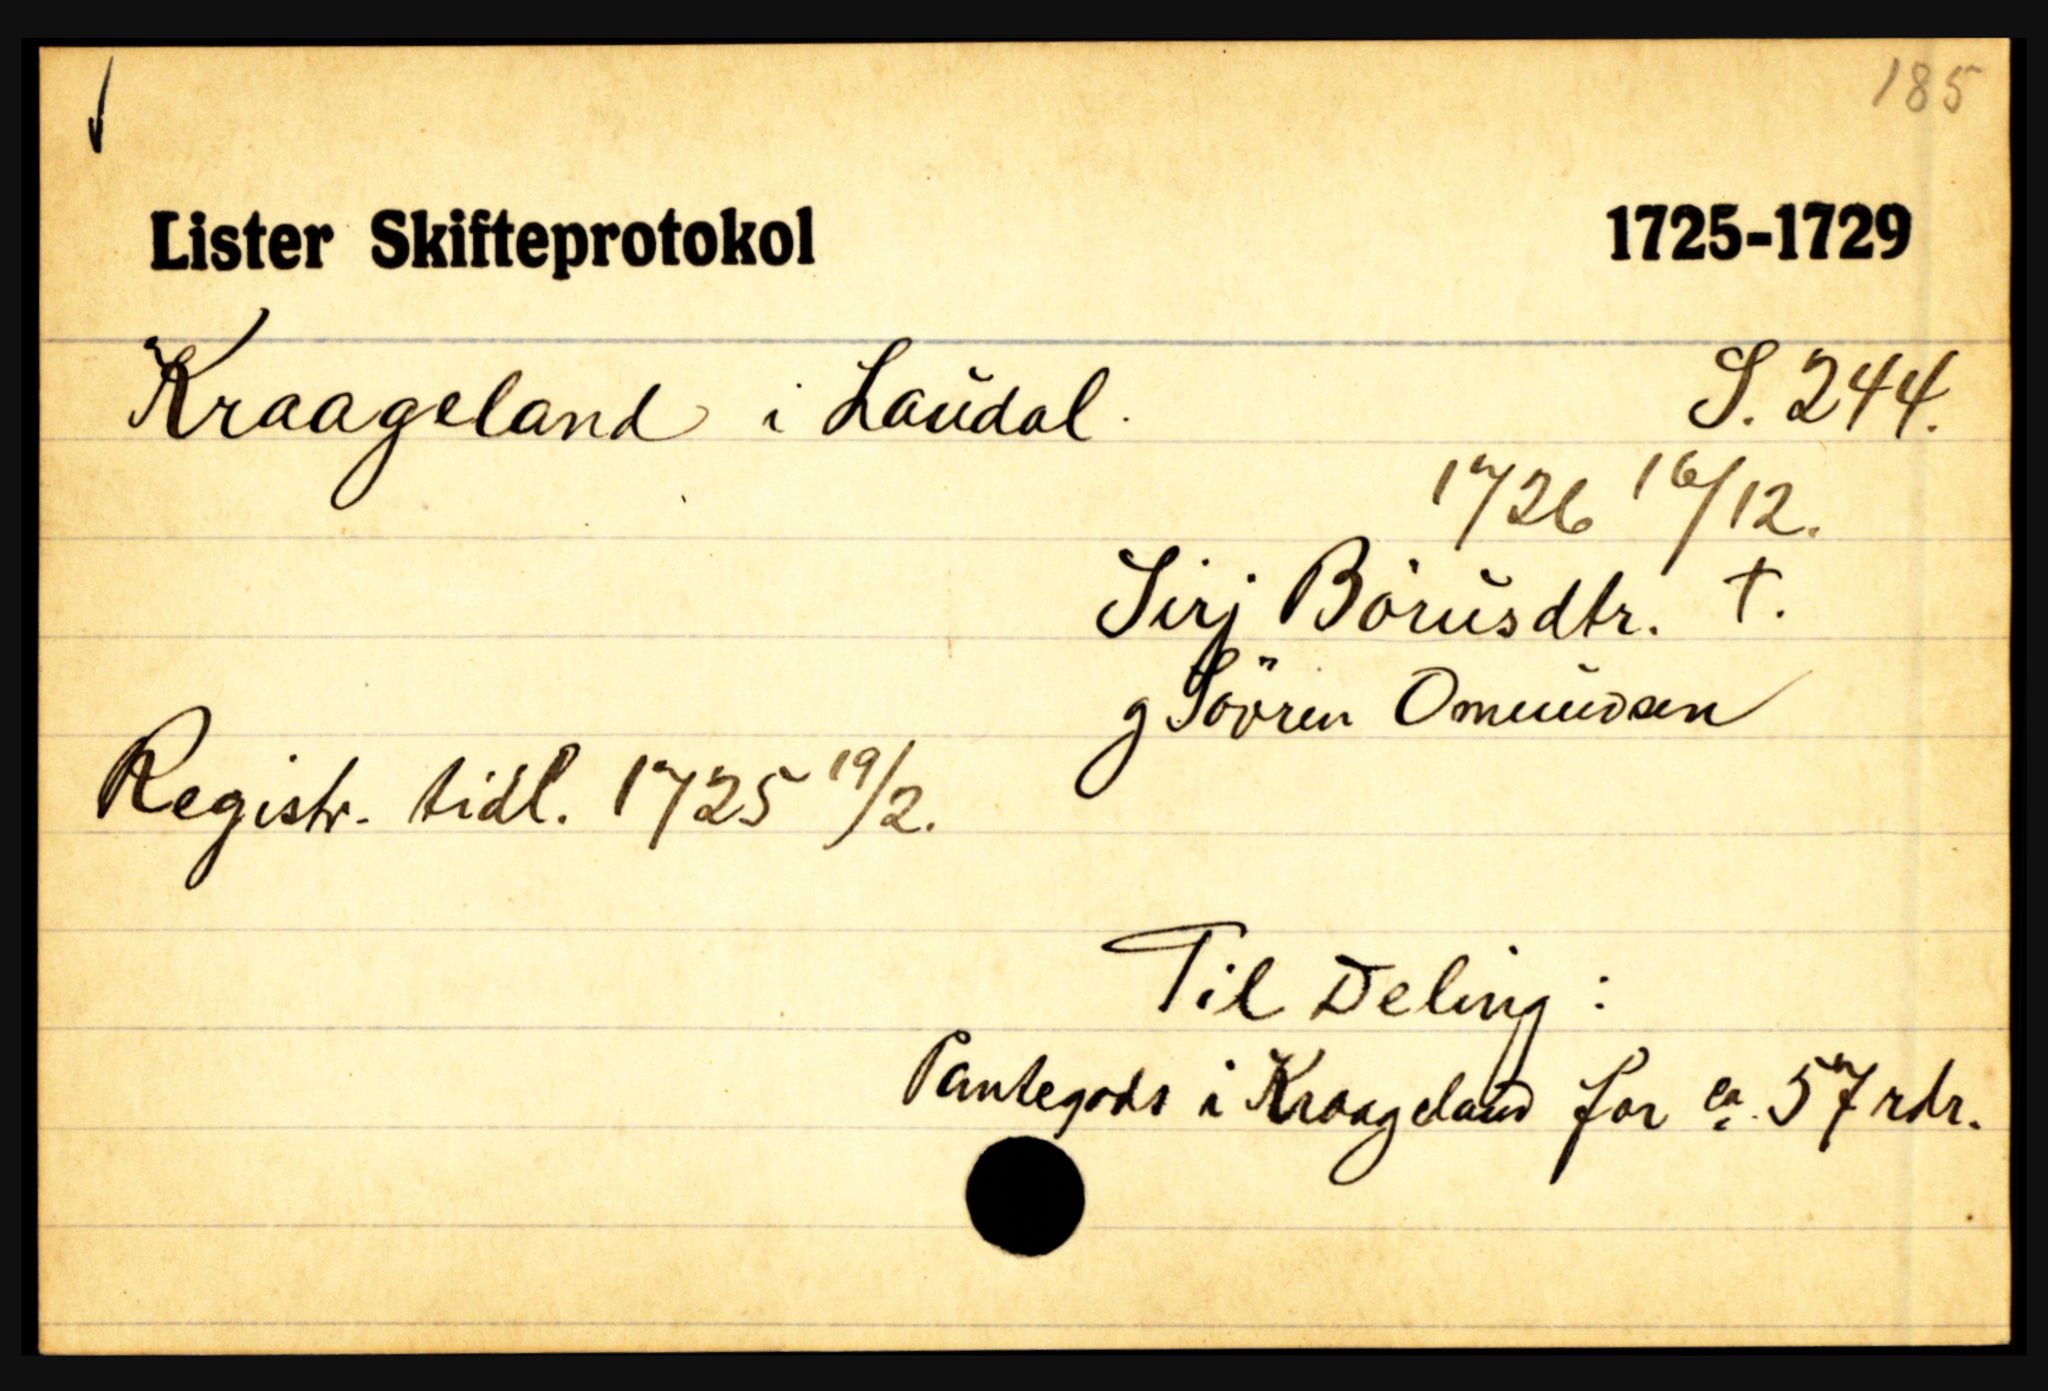 185
Lister Skifteprotokol 1725-1729
Kraageland i Laudal. S. 244.
1726 16/12.
Sirj Börusdtr. †.
g Sövren Omundsen
Registr. tidl. 1725 19/2.
Til Deling:
Pantegods i Kraageland for ca. 57 rdr.